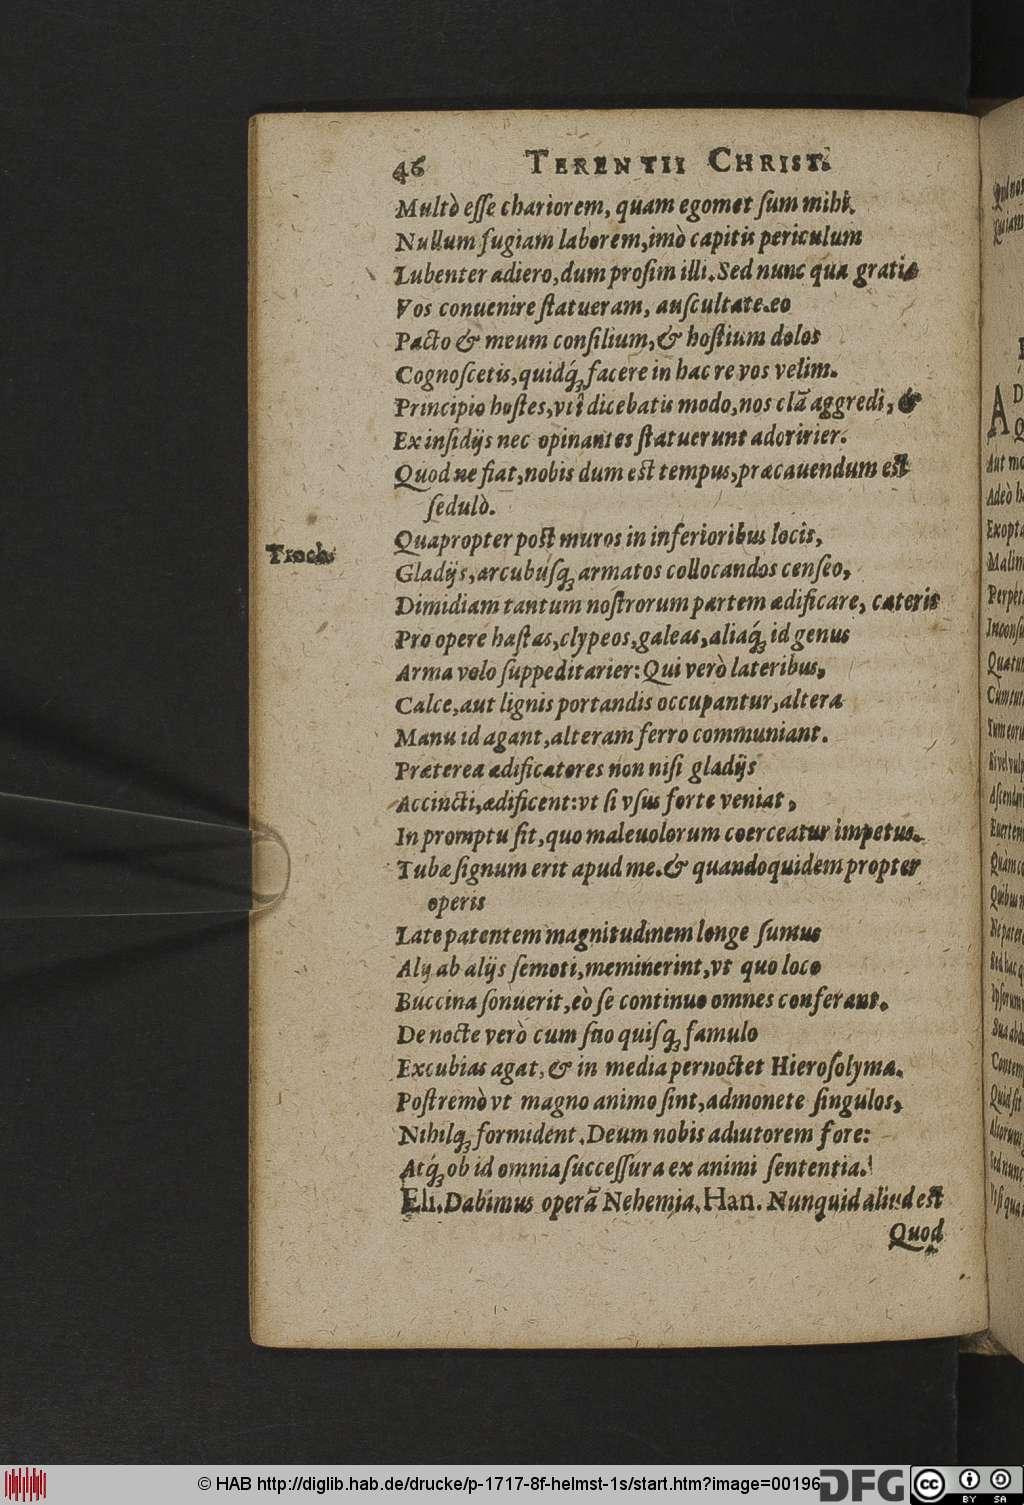 46 TERENTII CHRIST.
Multò eſſe chariorem, quam egomet ſum mihi.
Nullum fugiam laborem, imò capitis periculum
Lubenter adiero, dum proſim illi. Sed nunc qua gratia
Vos conuenire ſtatueram, auſcultate. eo
Pacto & meum conſilium, & hoſtium dolos
Cognoſcetis, quidq́ꝫ facere in hac re vos velim.
Principio hoſtes, vti dicebatis modo, nos clã aggredi, &
Ex inſidijs nec opinantes ſtatuerunt adoririer.
Quod ne fiat, nobis dum eſt tempus, præcauendum eſt
ſedulò.
Troch.
Quapropter poſt muros in inferioribus locis,
Gladijs, arcubuſqꝫ armatos collocandos cenſeo,
Dimidiam tantum noſtrorum partem ædificare, cæteris
Pro opere haſtas, clypeos, galeas, aliaq́ꝫ id genus
Arma volo ſuppeditarier: Qui verò lateribus,
Calce, aut lignis portandis occupantur, altera
Manu id agant, alteram ferro communiant.
Præterea ædificatores non niſi gladijs
Accincti, ædificent: vt ſi vſus forte veniat,
In promptu ſit, quo maleuolorum coerceatur impetus.
Tubæ ſignum erit apud me. & quandoquidem propter
operis
Late patentem magnitudinem longe ſumus
Alij ab alijs ſemoti, meminerint, vt quo loco
Buccina ſonuerit, eò ſe continuo omnes conferant.
De nocte verò cum ſuo quiſqꝫ famulo
Excubias agat, & in media pernoctet Hieroſolyma.
Poſtremò vt magno animo ſint, admonete ſingulos,
Nihilqꝫ formident. Deum nobis adiutorem fore:
Atq́ꝫ ob id omnia ſucceſſura ex animi ſententia.
Eli. Dabimus operã Nehemia. Han. Nunquid aliud eſt
Quod
© HAB http://diglib.hab.de/drucke/p-1717-8f-helmst-1s/start.htm?image=00196
DFG
cc
BY SA